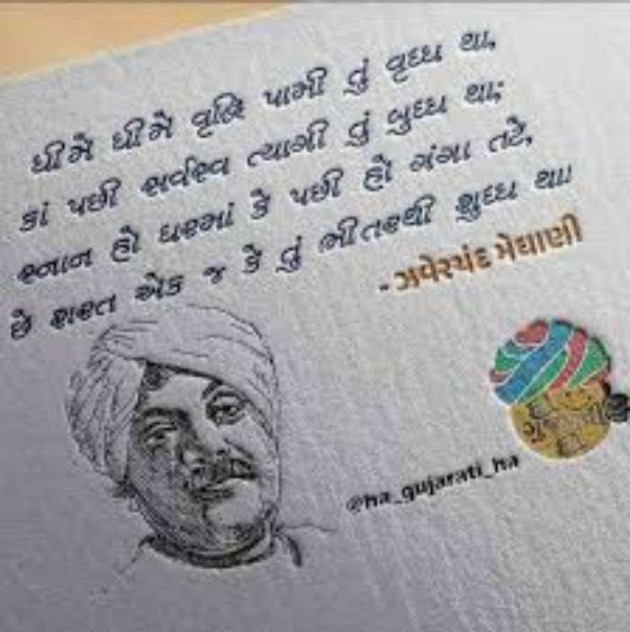 ધીમે ધીમે વૃદ્ધિ પામી તું વૃધ્ધ થા,
કાં પછી સર્વસ્વ ત્યાગી તું બુધ્ધ થા;
સ્નાન હો ઘરમાં કે પછી હો ગંગા તટે,
છે શરત એક જ કે તું ભીતરથી શુધ્ધ થા!
- ઝવેરચંદ મેઘાણી
@ha_gujarati_ha